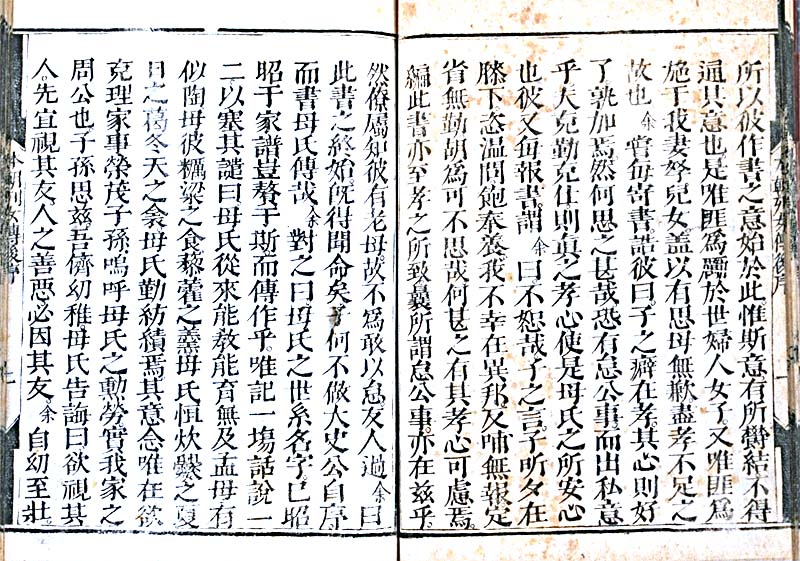 所以彼作書之意始於此惟斯意有所欝結不得
通其意也是唯匪爲彌於世婦人女子又唯匪爲
施于我妻孥兒女蓋以有思母無歉盡孝不足之
故也余嘗每寄書誥彼曰子之癖在孝其心則好
了孰加焉然何思之甚哉恐有怠公事而出私意
乎夫克勤克仕則眞之孝心使是母氏之所安心
也彼又每報書謂余曰不恕哉子之言予所夕在
膝下恣温問飽奉養我不幸在異邦反哺無報定
省無勤胡爲可不思哉何甚之有其孝心可慮焉
編此書亦至孝之所致曩所謂怠公事亦在玆乎
然僚屬知彼有老母故不爲敢以怠友人過余曰
此書之終始旣得聞命矣子何不倣大史公自序
而書母氏傳哉余對之曰母氏之世系名字已昭
昭于家譜豈贅于斯而傳作乎唯記一塲話說一
二以塞其譴曰母氏從來能敎能育無及孟母有
似陶母彼糲粱之食藜藿之羹母氏恒炊爨之夏
日之葛冬天之裘母氏勤紡績焉其意念唯在欲
克理家事榮茂子孫嗚呼母氏之勳勞實我家之
周公也子孫思玆吾儕幼稚母氏告誨曰欲視其
人先宜視其友人之善惡必因其友余自幼至壯